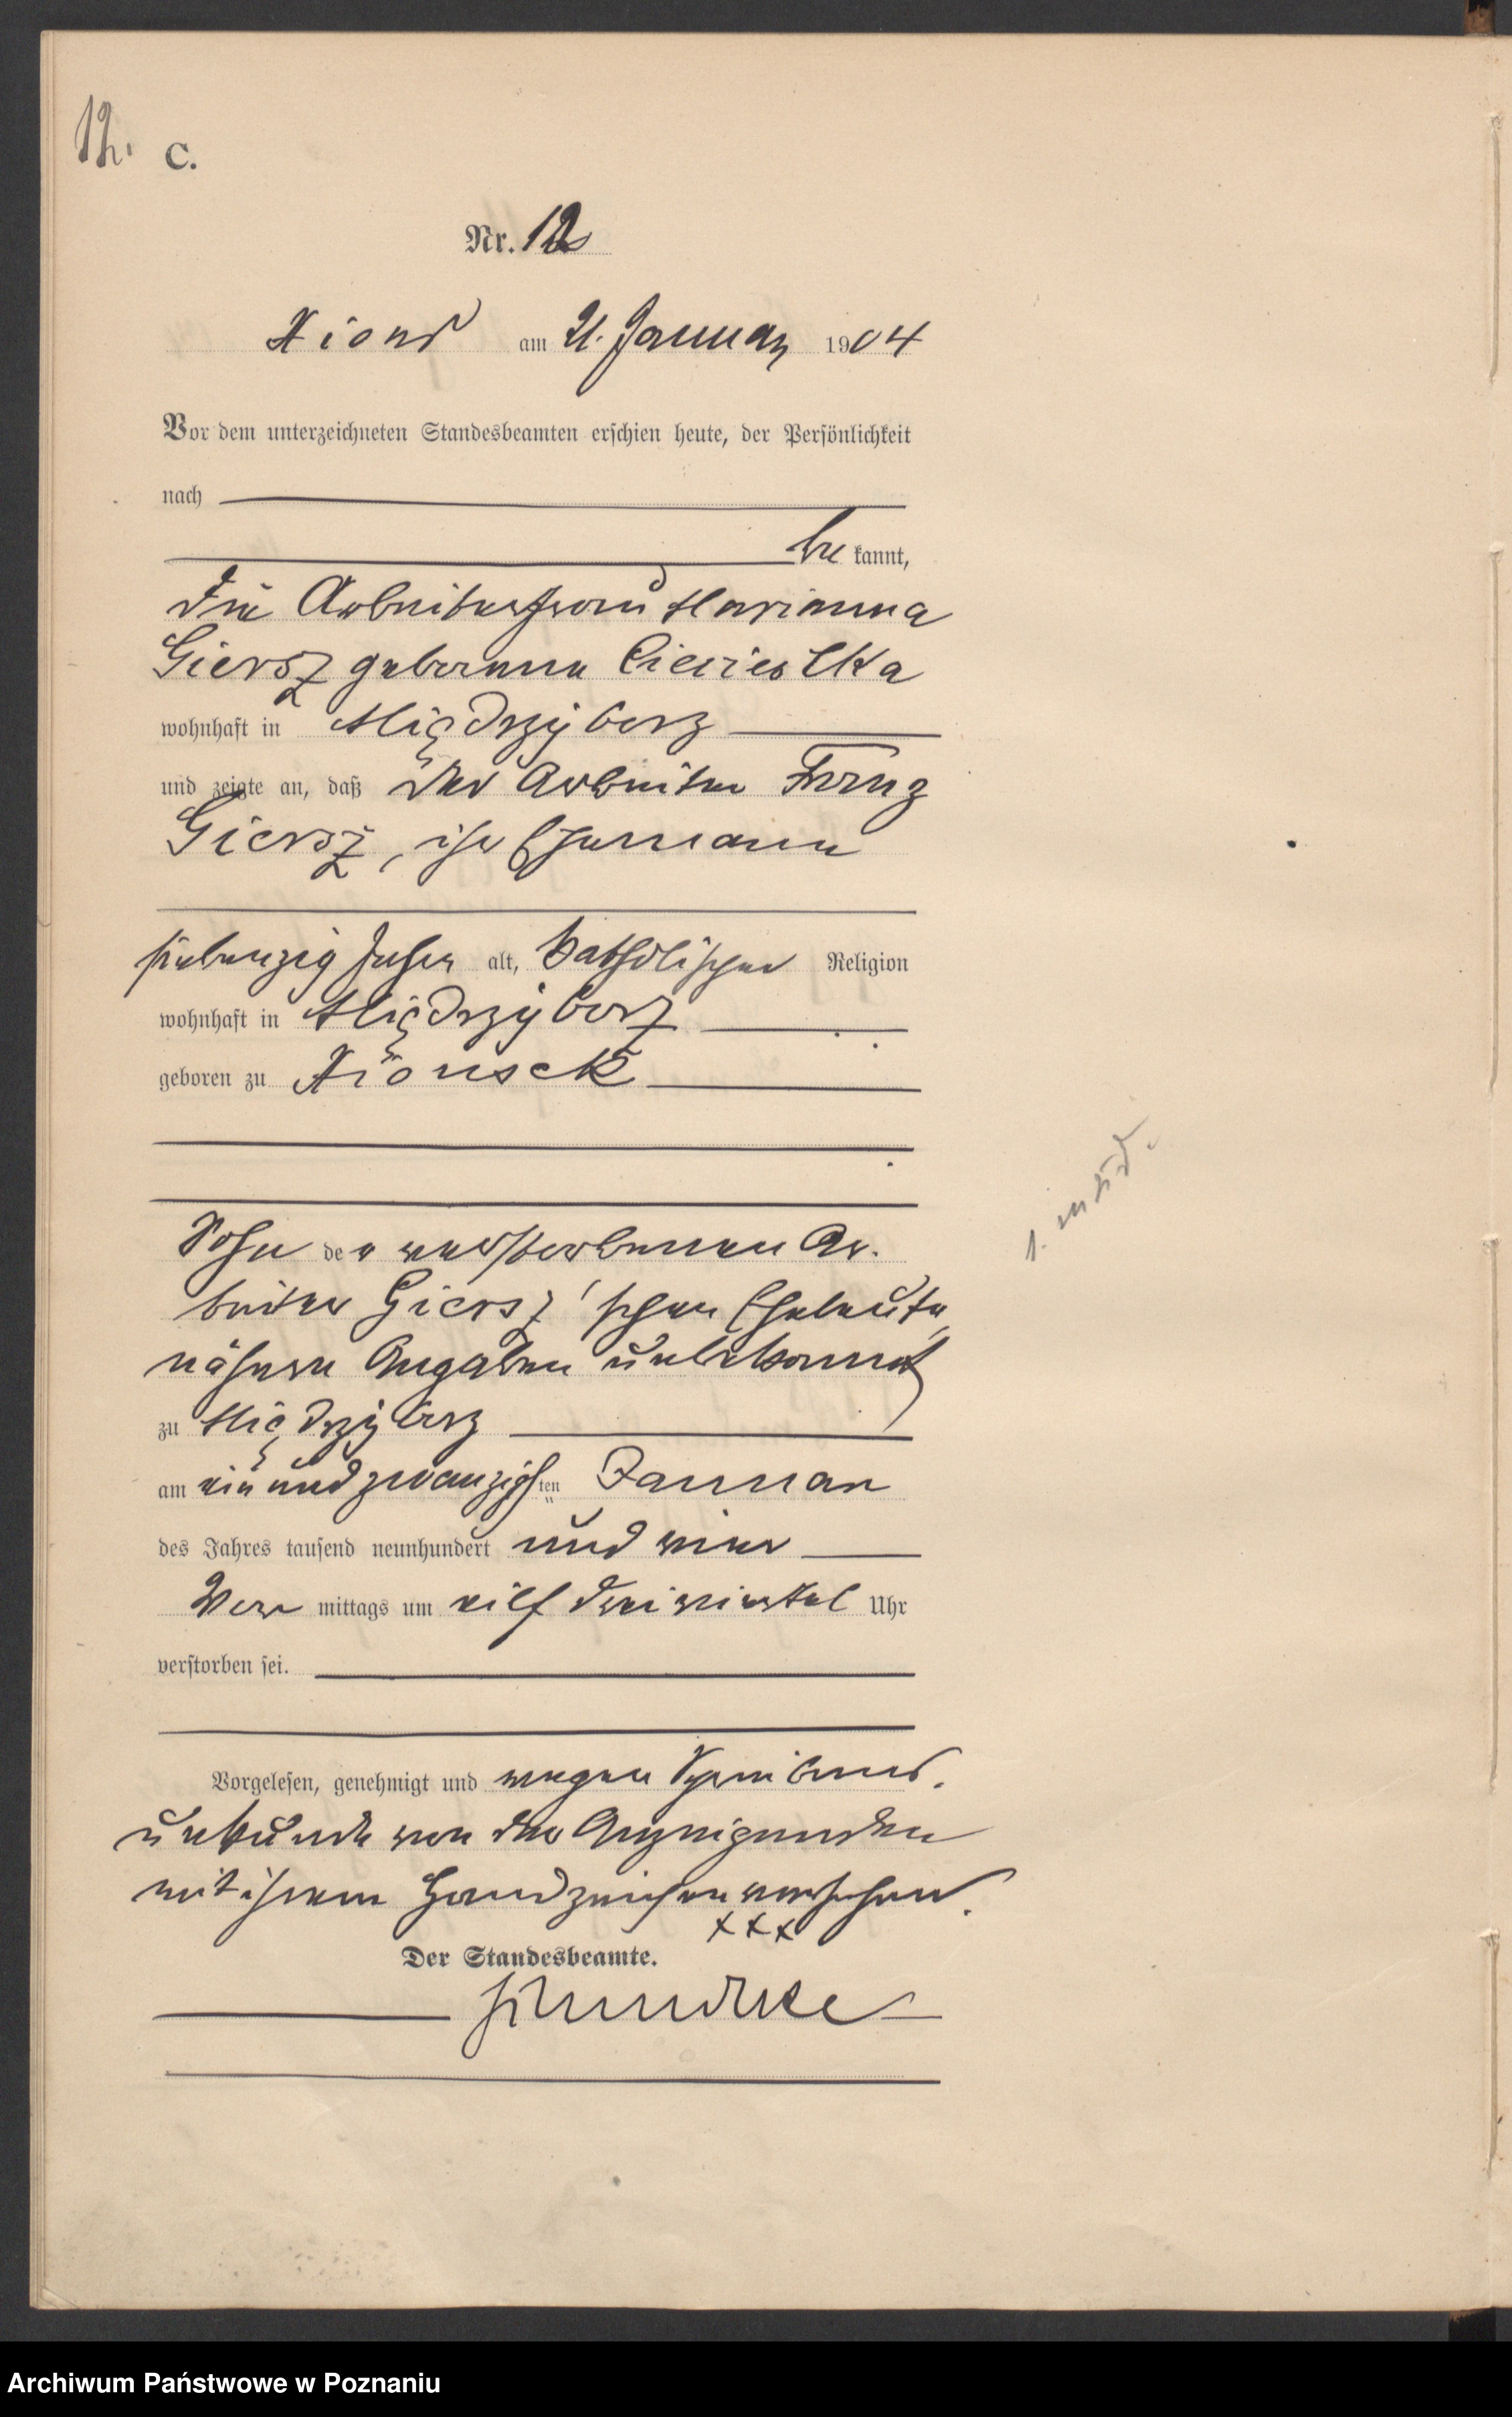 12.
C.
Nr. 12
Xions am 21. Januar 1904
Vor dem unterzeichneten Standesbeamten erschien heute, der Persönlichkeit
nach
be kannt,
die Arbeiterfrau Marianna
Giersz geborene
wohnhaft in Międzyborz
und zeigte an, daß der Arbeiter Franz
Giersz, ihr Ehemann
siebenzig Jahre alt, katholischer Religion
wohnhaft in Międzyborz
geboren zu Xionsek
Sohn der verstorbenen Ar-
beiter Giersz'schen Eheleute,
nähere Angaben unbekannt
zu Międzyborz
am ein und zwanzigsten Januar
des Jahres tausend neunhundert und vier
Vor mittags um eilf dreiviertel Uhr
verstorben sei.
Vorgelesen, genehmigt und wegen Schreibens-
unkunde von der Anzeigenden
mit ihrem Handzeichen versehen.
xxx
Der Standesbeamte.
1.
Archiwum Państwowe w Poznaniu